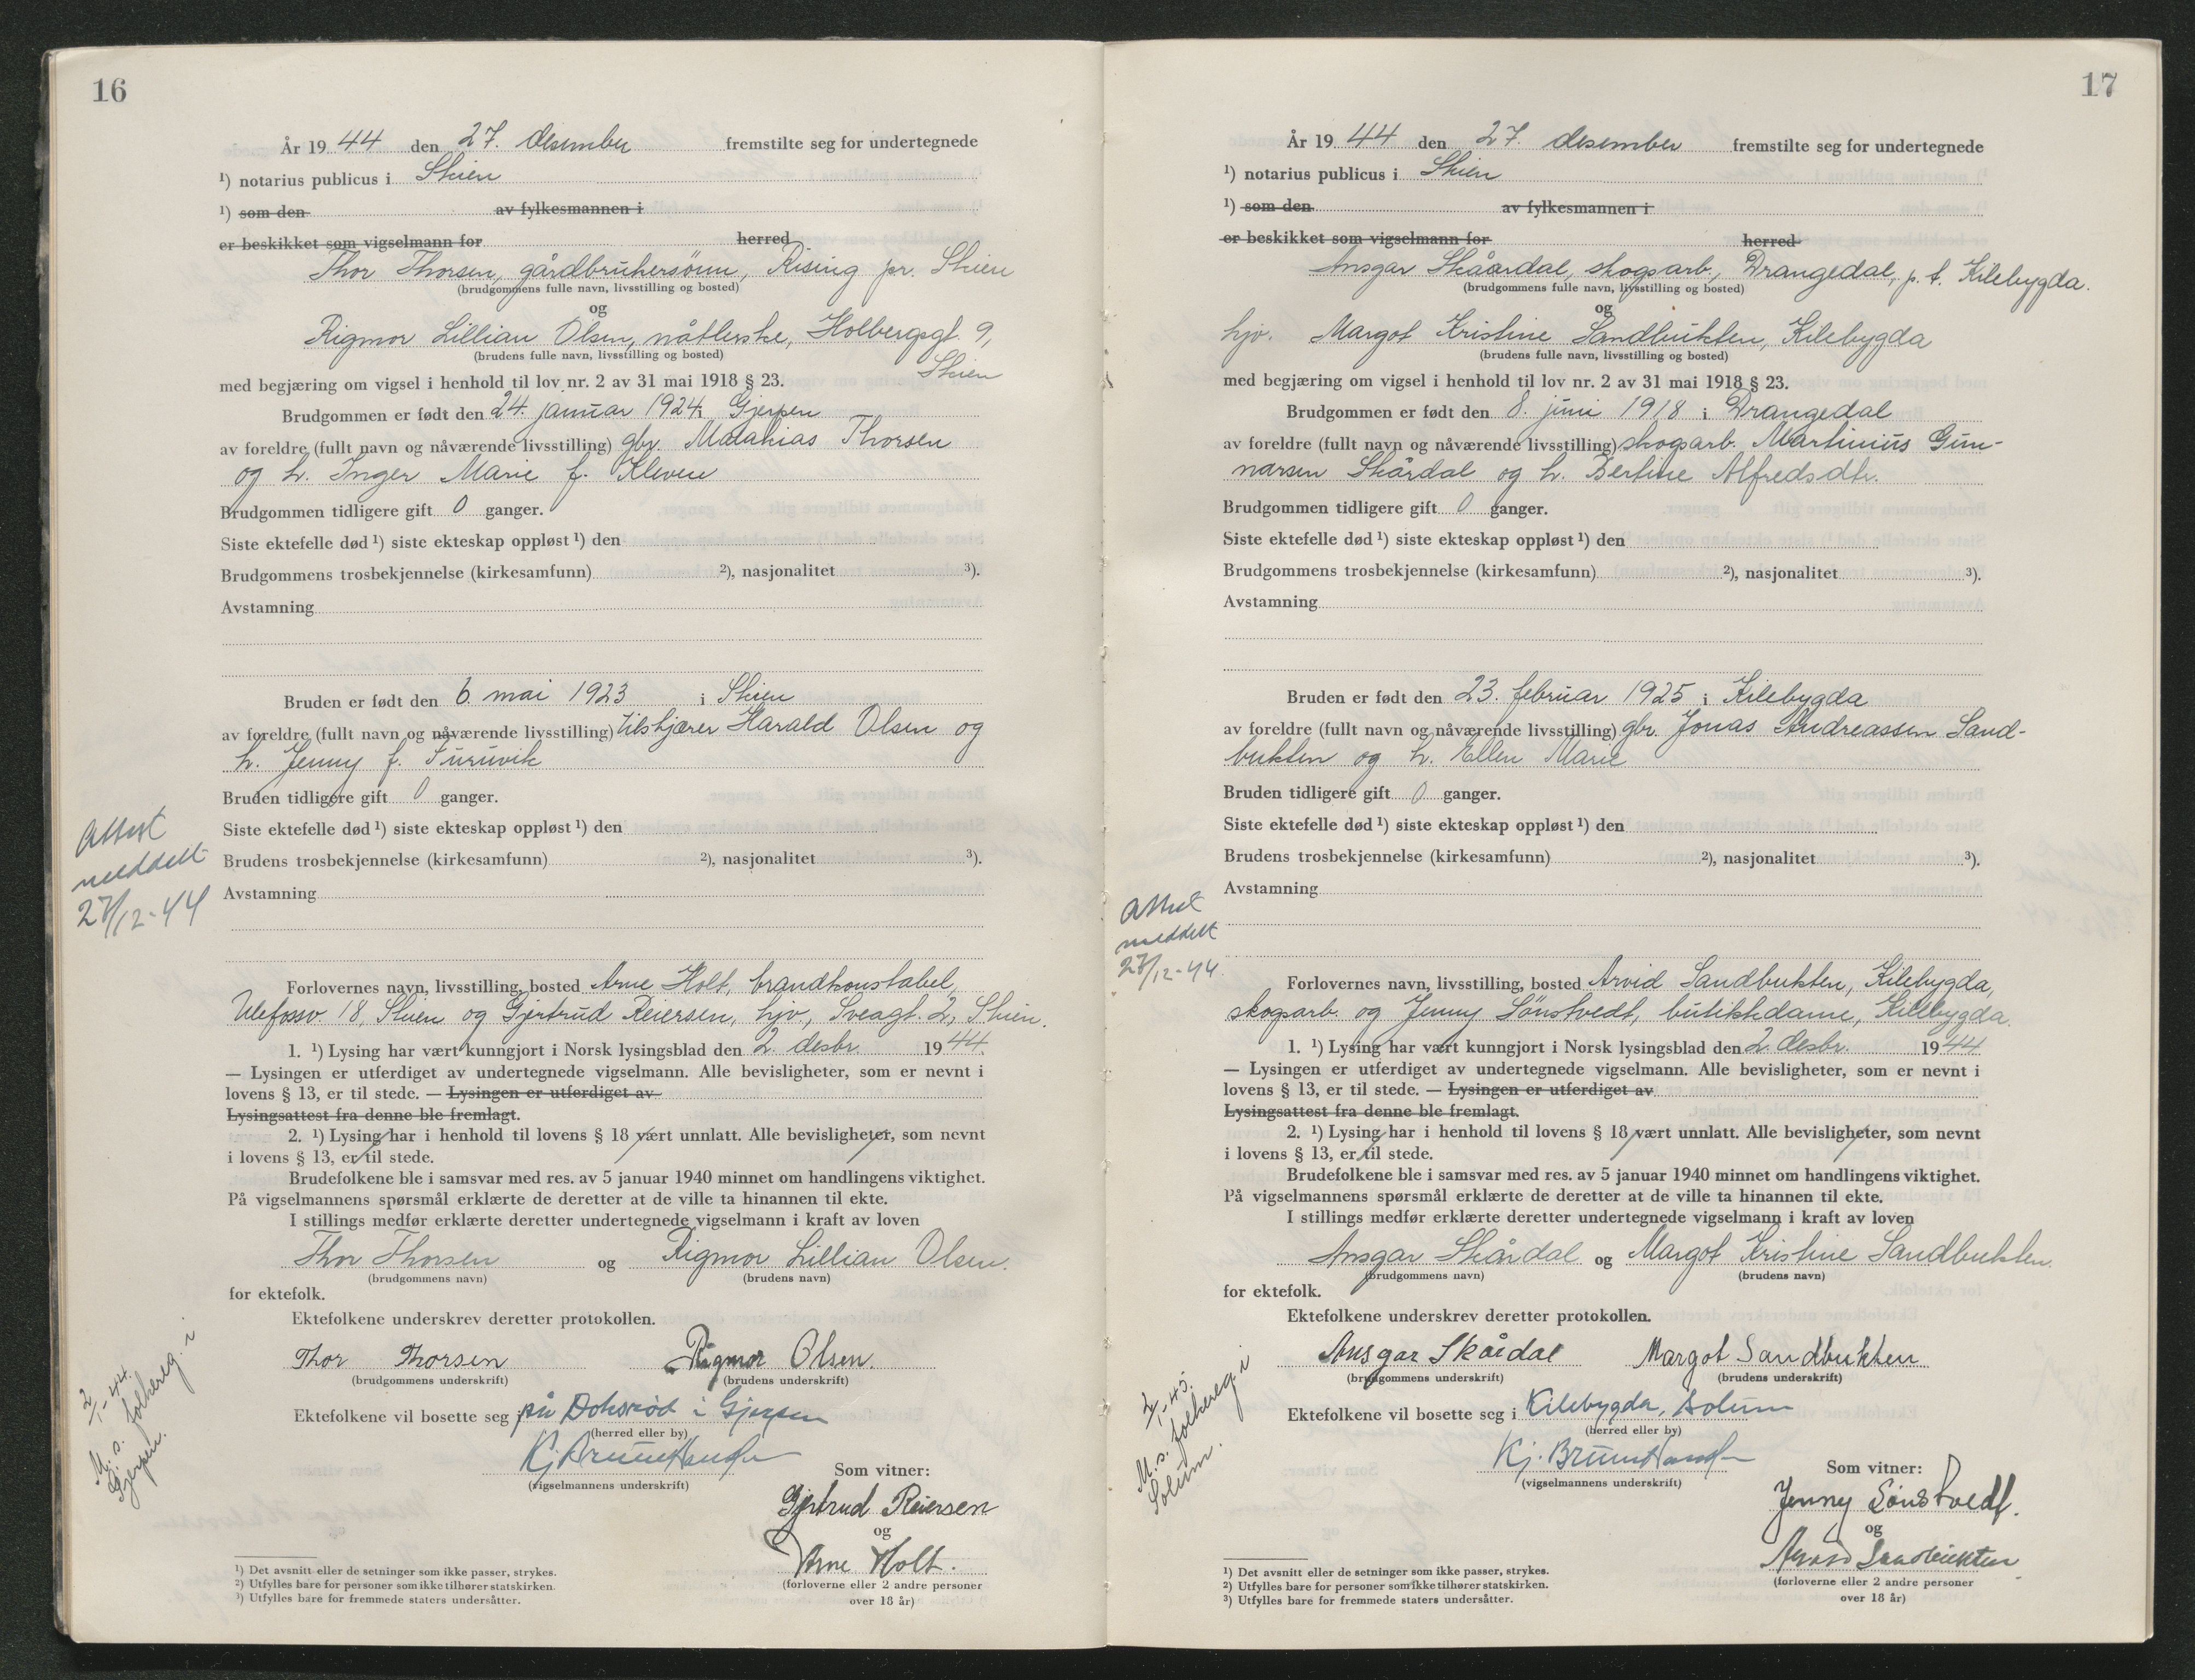 16
År 1944 den 27. desember fremstilte seg for undertegnede
¹) notarius publicus i Skien
¹) som den av fylkesmannen i
er beskikket som vigselmann for herred
Thor Thorsen, gårdbrukersönn, Rising pr. Skien
(brudgommens fulle navn, livsstilling og bosted)
og
Rigmor Lillian Olsen, nåtlerske, Holbergsgt. 9,
(brudens fulle navn, livsstilling og bosted)
Skien
med begjæring om vigsel i henhold til lov nr. 2 av 31 mai 1918 § 23.
Brudgommen er født den 24. januar 1924 i Gjerpen
av foreldre (fullt navn og nåværende livsstilling) gbr. Matahias Thorsen
og h. Inger Marie f. Kleven
Brudgommen tidligere gift 0 ganger.
Siste ektefelle død ¹) siste ekteskap oppløst ¹) den
Brudgommens trosbekjennelse (kirkesamfunn) ²), nasjonalitet ³).
Avstamning
Bruden er født den 6. mai 1923 i Skien
av foreldre (fullt navn og nåværende livsstilling) tilskjærer Harald Olsen og
h. Jenny f. Furuvik
Bruden tidligere gift 0 ganger.
Siste ektefelle død ¹) siste ekteskap oppløst ¹) den
Brudens trosbekjennelse (kirkesamfunn) ²), nasjonalitet ³).
Avstamning
Attest
meddelt
27/12-44
Forlovernes navn, livsstilling, bosted Arne Holt, brandkonstabel,
Ulefossv 18, Skien og Gjertrud Reiersen, hjv., Sveagt. 2, Skien.
1. ¹) Lysing har vært kunngjort i Norsk lysingsblad den 2. desbr. 1944.
— Lysingen er utferdiget av undertegnede vigselmann. Alle bevisligheter, som er nevnt i
lovens § 13, er til stede. — Lysingen er utferdiget av
Lysingsattest fra denne ble fremlagt.
2. ¹) Lysing har i henhold til lovens § 18 vært unnlatt. Alle bevisligheter, som nevnt
i lovens § 13, er til stede.
Brudefolkene ble i samsvar med res. av 5 januar 1940 minnet om handlingens viktighet.
På vigselmannens spørsmål erklærte de deretter at de ville ta hinannen til ekte.
I stillings medfør erklærte deretter undertegnede vigselmann i kraft av loven
Thor Thorsen og Rigmor Lillian Olsen.
(brudgommens navn) (brudens navn)
for ektefolk.
Ektefolkene underskrev deretter protokollen.
Thor Thorsen Rigmor Olsen.
(brudgommens underskrift) (brudens underskrift)
Ektefolkene vil bosette seg i på Doksrød i Gjerpen
(herred eller by)
Kj. Bruun Hansen
(vigselmannens underskrift)
Som vitner:
Gjertrud Reiersen
og
Arne Holt.
(forloverne eller 2 andre personer
over 18 år)
2/1-44.
M. s. folkereg. i
Gjerpen.
¹) Det avsnitt eller de setninger som ikke passer, strykes.
²) Utfylles bare for personer som ikke tilhører statskirken.
³) Utfylles bare for fremmede staters undersåtter.
17
År 1944 den 27. desember fremstilte seg for undertegnede
¹) notarius publicus i Skien
¹) som den av fylkesmannen i
er beskikket som vigselmann for herred
Ansgar Skåardal, skogsarb., Drangedal, p. t. Kilebygda.
(brudgommens fulle navn, livsstilling og bosted)
og
hjv. Margot Kristine Sandbukten, Kilebygda
(brudens fulle navn, livsstilling og bosted)
med begjæring om vigsel i henhold til lov nr. 2 av 31 mai 1918 § 23.
Brudgommen er født den 8. juni 1918 i Drangedal
av foreldre (fullt navn og nåværende livsstilling) skogsarb. Martinius Gun-
narsen Skårdal og h. Bertine Alfredsdtr.
Brudgommen tidligere gift 0 ganger.
Siste ektefelle død ¹) siste ekteskap oppløst ¹) den
Brudgommens trosbekjennelse (kirkesamfunn) ²), nasjonalitet ³).
Avstamning
Bruden er født den 23. februar 1925 i Kilebygda
av foreldre (fullt navn og nåværende livsstilling) gbr. Jonas Andreassen Sand-
bukten og h. Ellen Marie
Bruden tidligere gift 0 ganger.
Siste ektefelle død ¹) siste ekteskap oppløst ¹) den
Brudens trosbekjennelse (kirkesamfunn) ²), nasjonalitet ³).
Avstamning
Attest
meddelt
27/12-44.
Forlovernes navn, livsstilling, bosted Arvid Sandbukten, Kilebygda,
skogsarb. og Jenny Sönstvedt, butikkdame, Kilebygda.
1. ¹) Lysing har vært kunngjort i Norsk lysingsblad den 2. desbr. 1944
— Lysingen er utferdiget av undertegnede vigselmann. Alle bevisligheter, som er nevnt i
lovens § 13, er til stede. — Lysingen er utferdiget av
Lysingsattest fra denne ble fremlagt.
2. ¹) Lysing har i henhold til lovens § 18 vært unnlatt. Alle bevisligheter, som nevnt
i lovens § 13, er til stede.
Brudefolkene ble i samsvar med res. av 5 januar 1940 minnet om handlingens viktighet.
På vigselmannens spørsmål erklærte de deretter at de ville ta hinannen til ekte.
I stillings medfør erklærte deretter undertegnede vigselmann i kraft av loven
Ansgar Skårdal og Margot Kristine Sandbukten.
(brudgommens navn) (brudens navn)
for ektefolk.
Ektefolkene underskrev deretter protokollen.
Ansgar Skårdal Margot Sandbukten
(brudgommens underskrift) (brudens underskrift)
Ektefolkene vil bosette seg i Kilebygda, Solum
(herred eller by)
Kj. Bruun Hansen
(vigselmannens underskrift)
Som vitner:
Jenny Sönstvedt.
og
Arvid Sandbukten
(forloverne eller 2 andre personer
over 18 år)
2/1-45.
M. s. folkereg. i
Solum.
¹) Det avsnitt eller de setninger som ikke passer, strykes.
²) Utfylles bare for personer som ikke tilhører statskirken.
³) Utfylles bare for fremmede staters undersåtter.